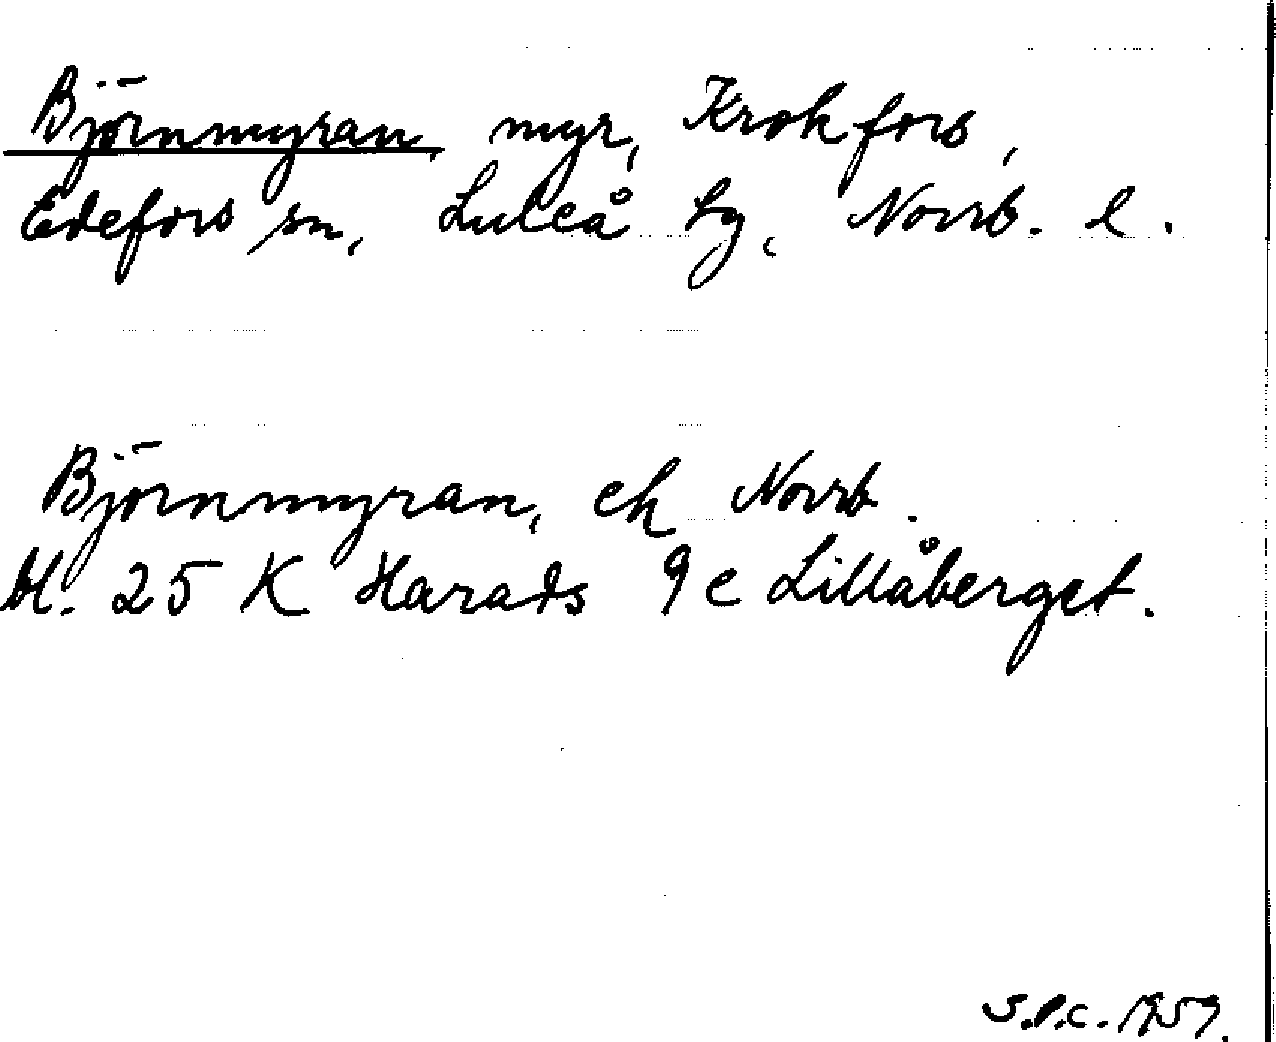 Björnmyran, myr, Krokfors,
Edefors sn, Luleå lg, Norrb. l.
Björnmyran, ek Norrb.
bl. 25 K Harads 9 e Lillåberget.
S.P.C. 1959.